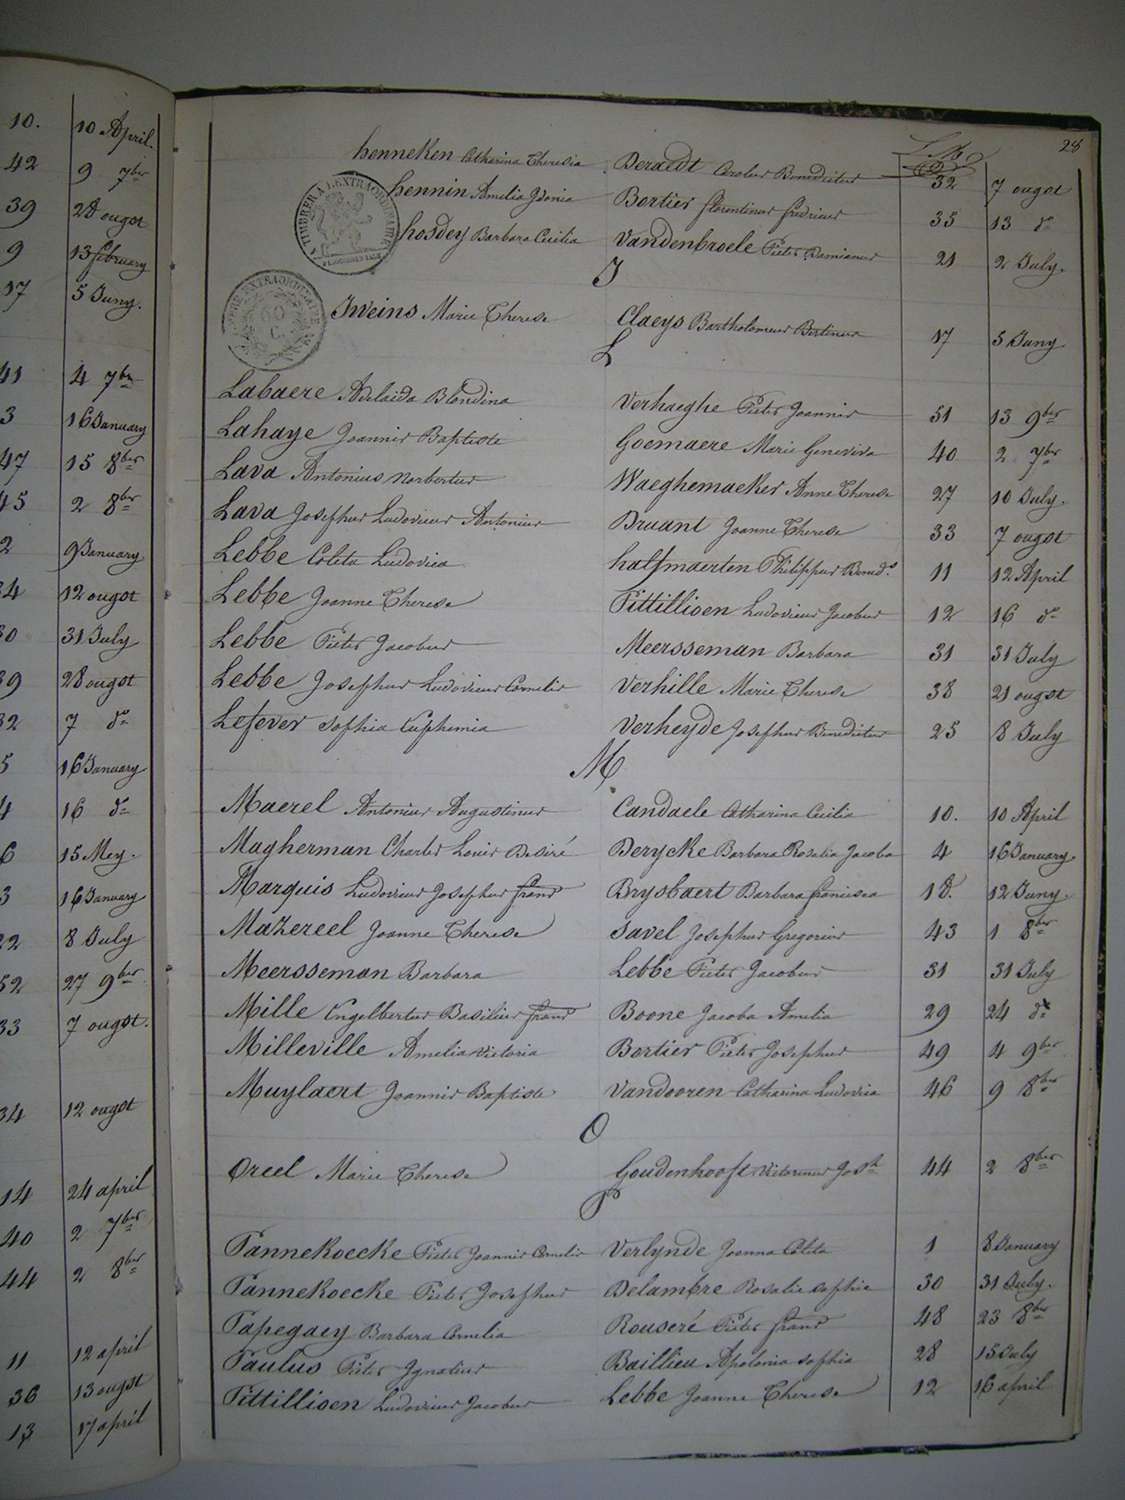 10. 10 April.
42 9 7ber
39 28 ougst
9 13 february
17 5 Juny.
41 4 7ber
3 16 January
47 15 8ber
45 2 8ber
2 9 January
34 12 ougst
30 31 July
39 28 ougst
32 7 do
5 16 January
4 16 do
6 15 Mey.
3 16 January
22 8 July
52 27 9ber
33 7 ougst.
34 12 ougst
14 24 april
40 2 7ber
44 2 8ber
11 12 april
36 13 ougst
13 17 april
28
henneken Catharina Theresia Deraedt Carolus Benedictus 32 7 ougst
hennin Amelia Ydonia Bortier florentinus fredricus 35 13 do
hosdey Barbara Cecilia Vandenbroele Pieter Damianus 21 2 July.
TIMBRE A L'EXTRAORDINAIRE
J
Jweins Marie Therese Claeys Bartholomeus Bertinus 17 5 Juny
L
Labaere Adelaida Blondina Verhaeghe Pieter Joannis 51 13 9ber
Lahaye Joannis Baptiste Goemaere Marie Geneviva 40 2 7ber
Lava Antonius Norbertus Waeghemaeker Anne Therese 27 10 July.
Lava Josephus Ludovicus Antonius Bruant Joanne Therese 33 7 ougst
Lebbe Coleta Ludovica halfmaerten Philippus Bened.s 11 12 April
Lebbe Joanne Therese Pittillioen Ludovicus Jacobus 12 16 do
Lebbe Pieter Jacobus Meersseman Barbara 31 31 July
Lebbe Josephus Ludovicus Cornelis Verhille Marie Therese 38 21 ougst
Lefever Sophia Euphemia Verheyde Josephus Benedictus 25 8 July
M
Maerel Antonius Augustinus Candaele Catharina Cecilia 10. 10 April
Magherman Charles Louis Desiré Derycke Barbara Rosalia Jacoba 4 16 January
Marquis Ludovicus Josephus frans Brysbaert Barbara francisca 18. 12 Juny.
Mazereel Joanne Therese Savel Josephus Gregorius 43 1 8ber
Meersseman Barbara Lebbe Pieter Jacobus 31 31 July
Mille Engelbertus Basilius frans Boone Jacoba Amelia 29 24 do
Milleville Amelia Victoria Bortier Pieter Josephus 49 4 9ber
Muylaert Joannis Baptiste Vandooren Catharina Ludovica 46 9 8ber
O
Oreel Marie Therese Goudenhooft Victorinus Josh 44 2 8ber
P
Pannekoecke Pieter Joannis Cornelis Verlynde Joanna Coleta 1 8 January
Pannekoecke Pieter Josephus Delambre Rosalie Sophia 30 31 July.
Papegaey Barbara Cornelia Rouseré Pieter frans 48 23 8ber
Paulus Pieter Jgnatius Baillieu Apolonia Sophia 28 15 July
Pittillioen Ludovicus Jacobus Lebbe Joanne Therese 12 16 april